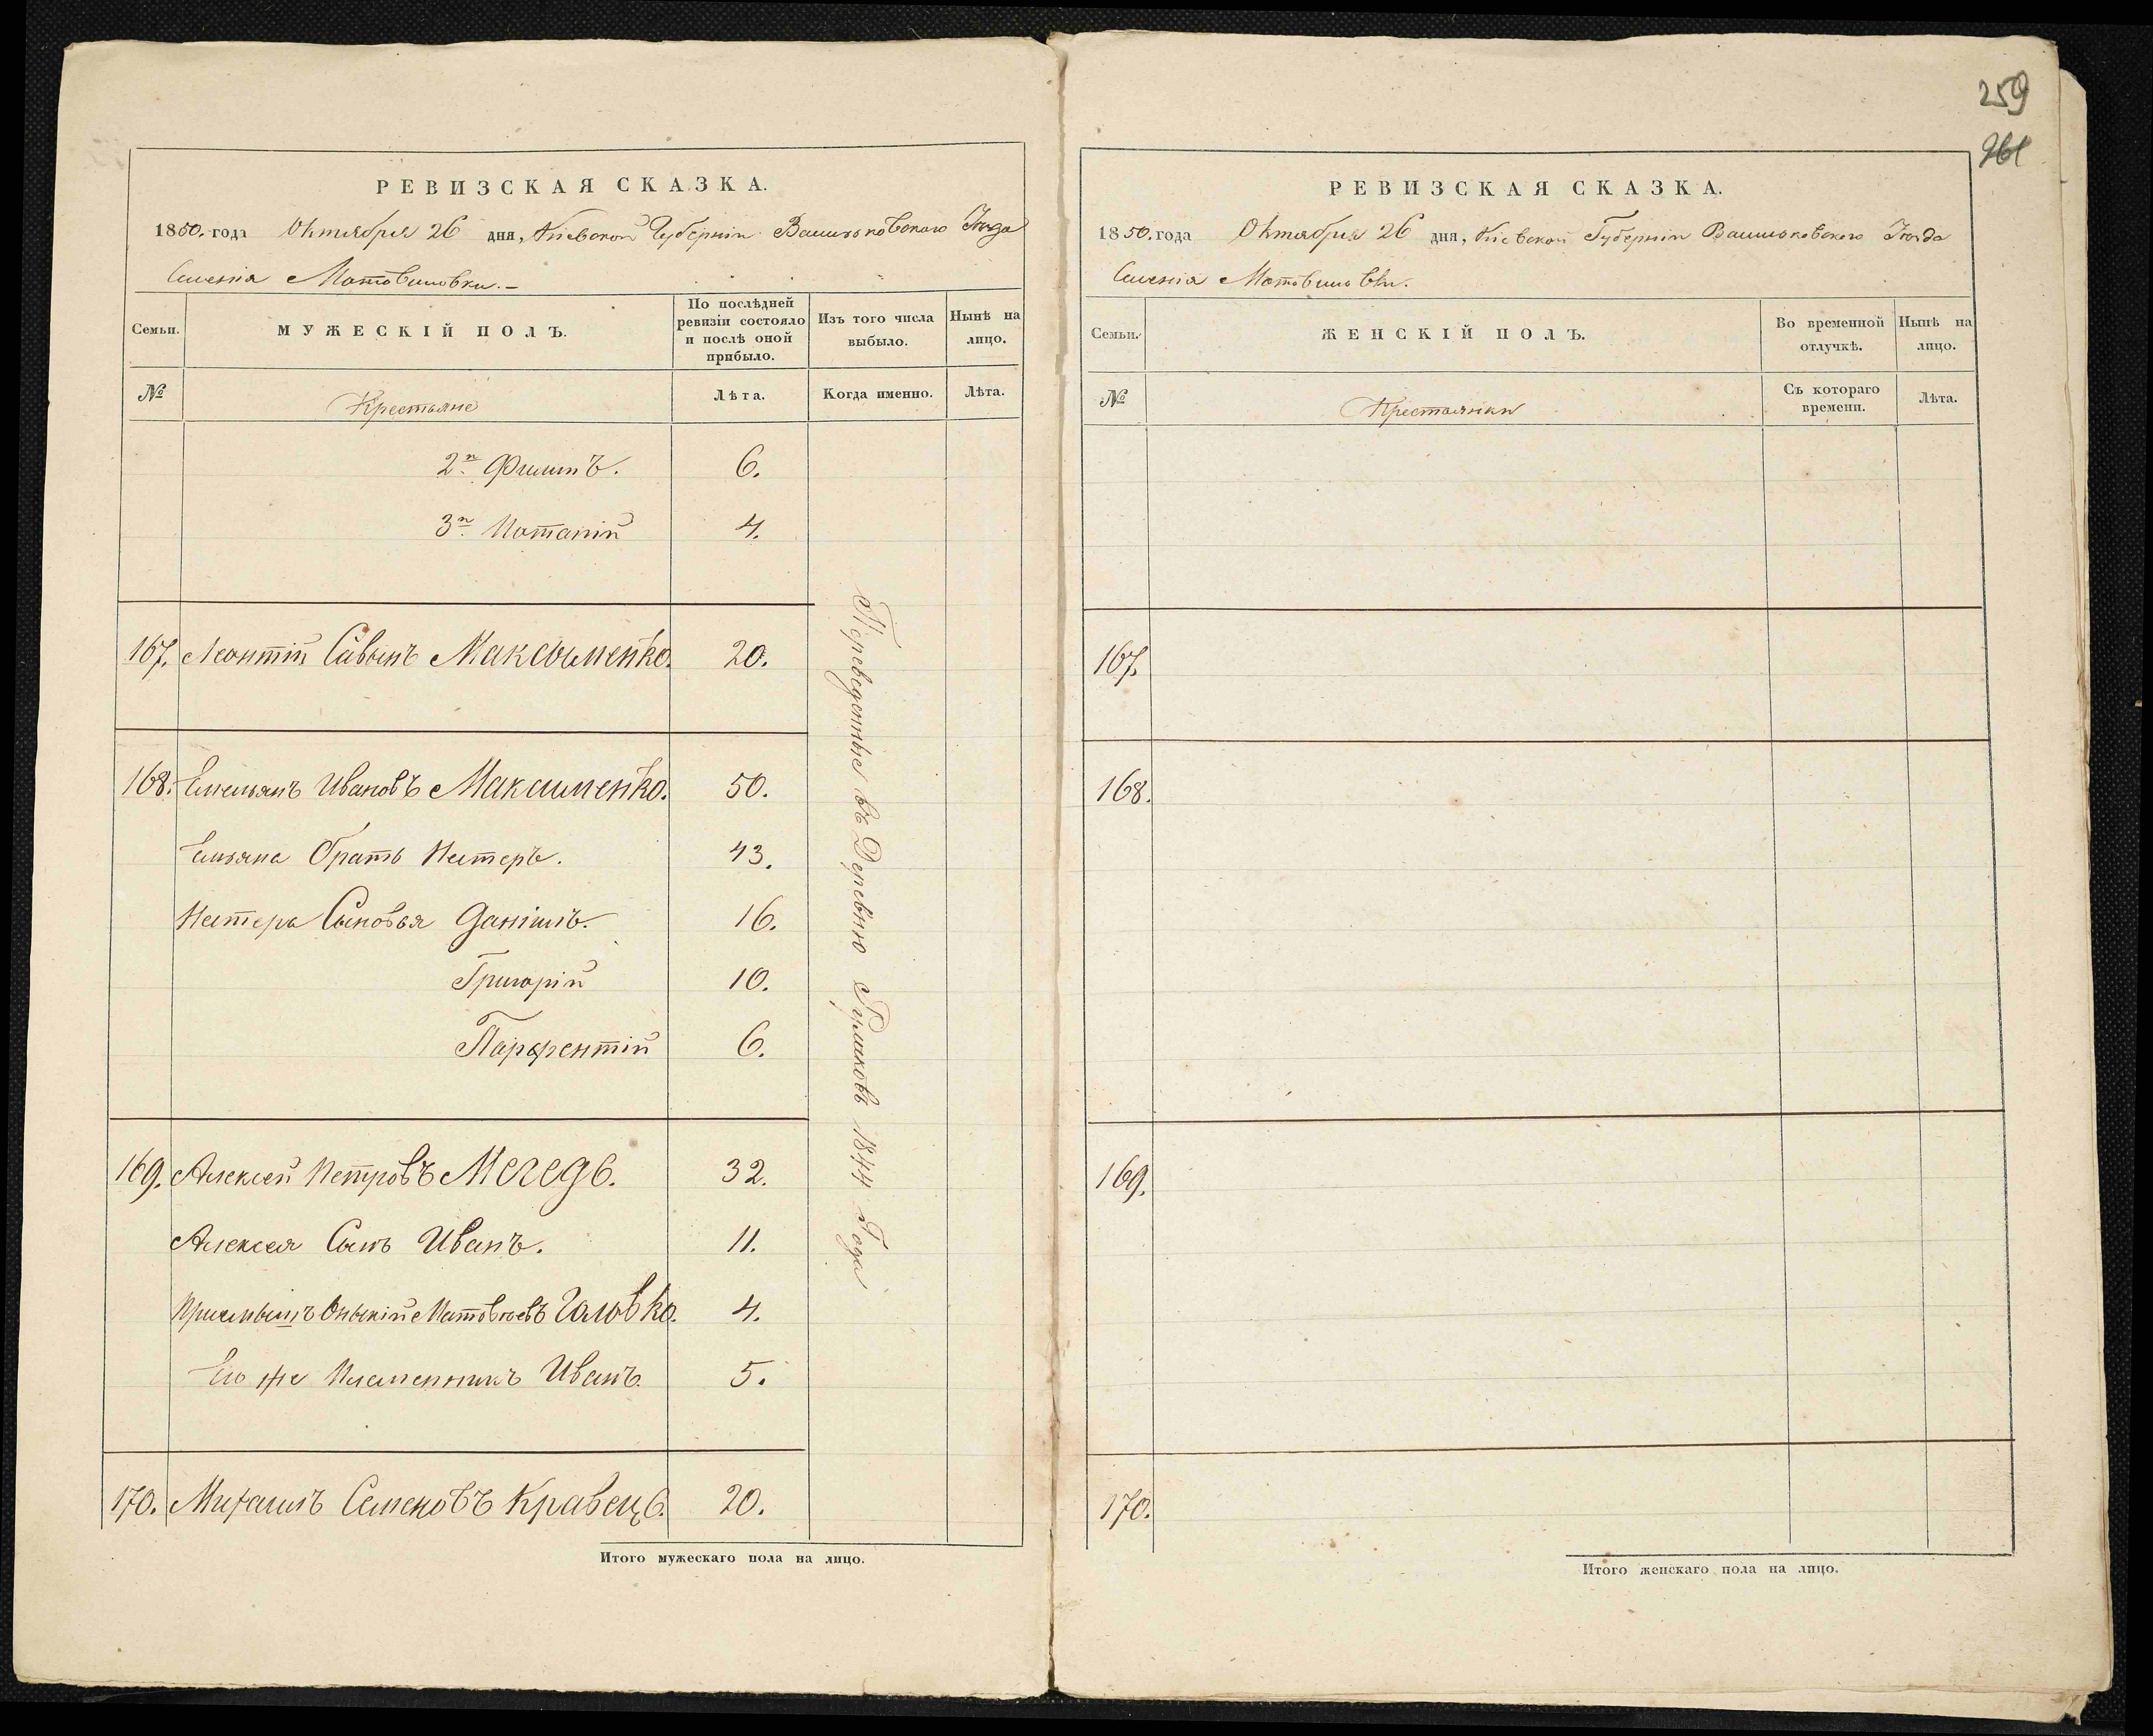 259
261
РЕВИЗСКАЯ СКАЗКА.
1850. года Октября 26 дня, Кіевской Губерніи Васильковскаго Уѣзда
Имѣнія Мотовиловки.-
Семьи. МУЖЕСКІЙ ПОЛЪ. По послѣдней ревизіи состояло и послѣ оной прибыло. Изъ того числа выбыло. Нынѣ на лицо.
№ Крестьяне Лѣта. Когда именно. Лѣта.
2й Филипъ. 6.
3й Потапій 4.
167. Леонтій Савинъ Максыменко. 20.
168. Емельянъ Ивановъ Максименко. 50.
Емельяна братъ Нестеръ. 43.
Нестера Сыновья Даніилъ. 16.
Григорій 10.
Парфентій 6.
169. Алексей Петровъ Мегедь. 32.
Алексея Сынъ Иванъ. 11.
Приемышъ Матвѣевъ Головко. 4.
Его же Племенникъ Иванъ. 5.
170. Михаилъ Семеновъ Кравець. 20.
Переведенные въ Деревню 1844 Года
Итого мужескаго пола на лицо.
РЕВИЗСКАЯ СКАЗКА.
1850. года Октября 26 дня, Кіевской Губерніи Васильковскаго Уѣзда
Имѣнія Мотовиловки.
Семьи. ЖЕНСКІЙ ПОЛЪ. Во временной отлучкѣ. Нынѣ на лицо.
№ Крестьянки Съ котораго времени. Лѣта.
167.
168.
169.
170.
Итого женскаго пола на лицо.